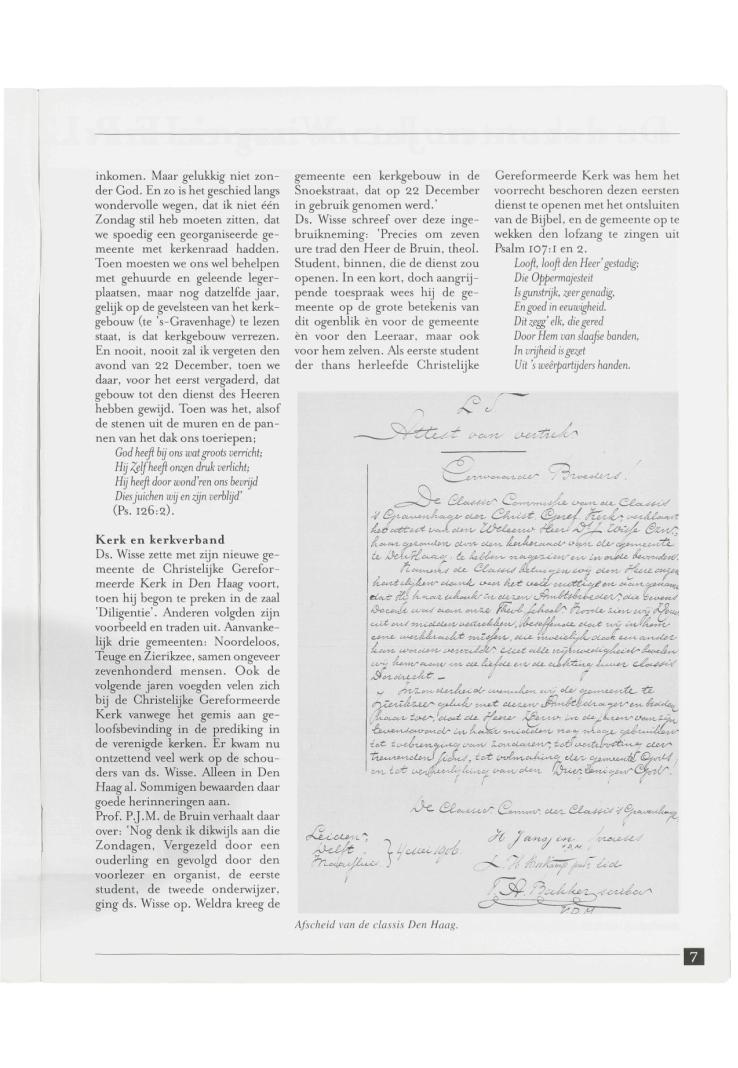 inkomen. Maar gelukkig niet zon-
der God. En zo is het geschied langs
wondervolle wegen, dat ik niet één
Zondag stil heb moeten zitten, dat
we spoedig een georganiseerde ge-
meente met kerkenraad hadden.
Toen moesten we ons wel behelpen
met gehuurde en geleende leger-
plaatsen, maar nog datzelfde jaar,
gelijk op de gevelsteen van het kerk-
gebouw (te 's-Gravenhage) te lezen
staat, is dat kerkgebouw verrezen.
En nooit, nooit zal ik vergeten den
avond van 22 December, toen we
daar, voor het eerst vergaderd, dat
gebouw tot den dienst des Heeren
hebben gewijd. Toen was het, alsof
de stenen uit de muren en de pan-
nen van het dak ons toeriepen;
God heeft bij ons wat groots verricht;
Hij Zelf heeft onzen druk verlicht;
Hij heeft door wond'ren ons bevrijd
Dies juichen wij en zijn verblijd'
(Ps. 126:2).
Kerk en kerkverband
Ds. Wisse zette met zijn nieuwe ge-
meente de Christelijke Gerefor-
meerde Kerk in Den Haag voort,
toen hij begon te preken in de zaal
'Diligentie'. Anderen volgden zijn
voorbeeld en traden uit. Aanvanke-
lijk drie gemeenten: Noordeloos,
Teuge en Zierikzee, samen ongeveer
zevenhonderd mensen. Ook de
volgende jaren voegden velen zich
bij de Christelijke Gereformeerde
Kerk vanwege het gemis aan ge-
loofsbevinding in de prediking in
de verenigde kerken. Er kwam nu
ontzettend veel werk op de schou-
ders van ds. Wisse. Alleen in Den
Haag al. Sommigen bewaarden daar
goede herinneringen aan.
Prof. P.J.M. de Bruin verhaalt daar
over: 'Nog denk ik dikwijls aan die
Zondagen, Vergezeld door een
ouderling en gevolgd door den
voorlezer en organist, de eerste
student, de tweede onderwijzer,
ging ds. Wisse op. Weldra kreeg de
gemeente een kerkgebouw in de
Snoekstraat, dat op 22 December
in gebruik genomen werd.'
Ds. Wisse schreef over deze inge-
bruikneming: 'Precies om zeven
ure trad den Heer de Bruin, theol.
Student, binnen, die de dienst zou
openen. In een kort, doch aangrij-
pende toespraak wees hij de ge-
meente op de grote betekenis van
dit ogenblik èn voor de gemeente
èn voor den Leeraar, maar ook
voor hem zelven. Als eerste student
der thans herleefde Christelijke
Gereformeerde Kerk was hem het
voorrecht beschoren dezen eersten
dienst te openen met het ontsluiten
van de Bijbel, en de gemeente op te
wekken den lofzang te zingen uit
Psalm 107:1 en 2.
Looft, looft den Heer' gestadig;
Die Oppermajesteit
Is gunstrijk, zeer genadig,
En goed in eeuwigheid.
Dit zegg' elk, die gered
Door Hem van slaafse banden,
In vrijheid is gezet
Uit 's weêrpartijders handen.
L S
Attest van vertrek
Eerwaarde Broeders!
De Classis Commissie van de Classis
's Gravenhage der Christ. Geref. Kerk, verklaart
het attest van den Weleerw Heer Ds J. Wisse Czn,
haar gezonden door den kerkeraad van de gemeente
te Den Haag, te hebben nagezien en in orde bevonden.
Namens de Classis betuigen wij den Heere onzen
hartelijken dank voor het vele nuttige en aangename
dat Hij haar schonk in dezen Ambtsbroeder, die tevens
Docent was aan onze Theol. School.
uit ons midden vertrekken, beseffende dat wij in hem
eene werkkracht missen, die moeielijk door een ander
kan worden vervuld. Met alle vrijmoedigheid bevelen
wij hem aan in de liefde en de achting uwer Classis
Dordrecht. –
Inzonderheid wenschen wij de gemeente te
Zierikzee geluk met dezen Ambtsdrager en bidden
haar toe, dat de Heere Zerw. in de jaren van zijn
levensavond in haar midden nog moge gebruiken
tot toebrenging van zondaren, tot vertroosting der
treurenden Sions, tot volmaking der gemeente Gods,
en tot verheerlijking van den Drieëenigen God.
De Classis Comm. der Classis 's Gravenhage
Leiden,
Delft
4 Mei 1906.
H Jansen praeses
V.D.M
L. H. Beekamp
lid
F. A. Bakker scriba
V.D.M
Afscheid van de classis Den Haag.
7